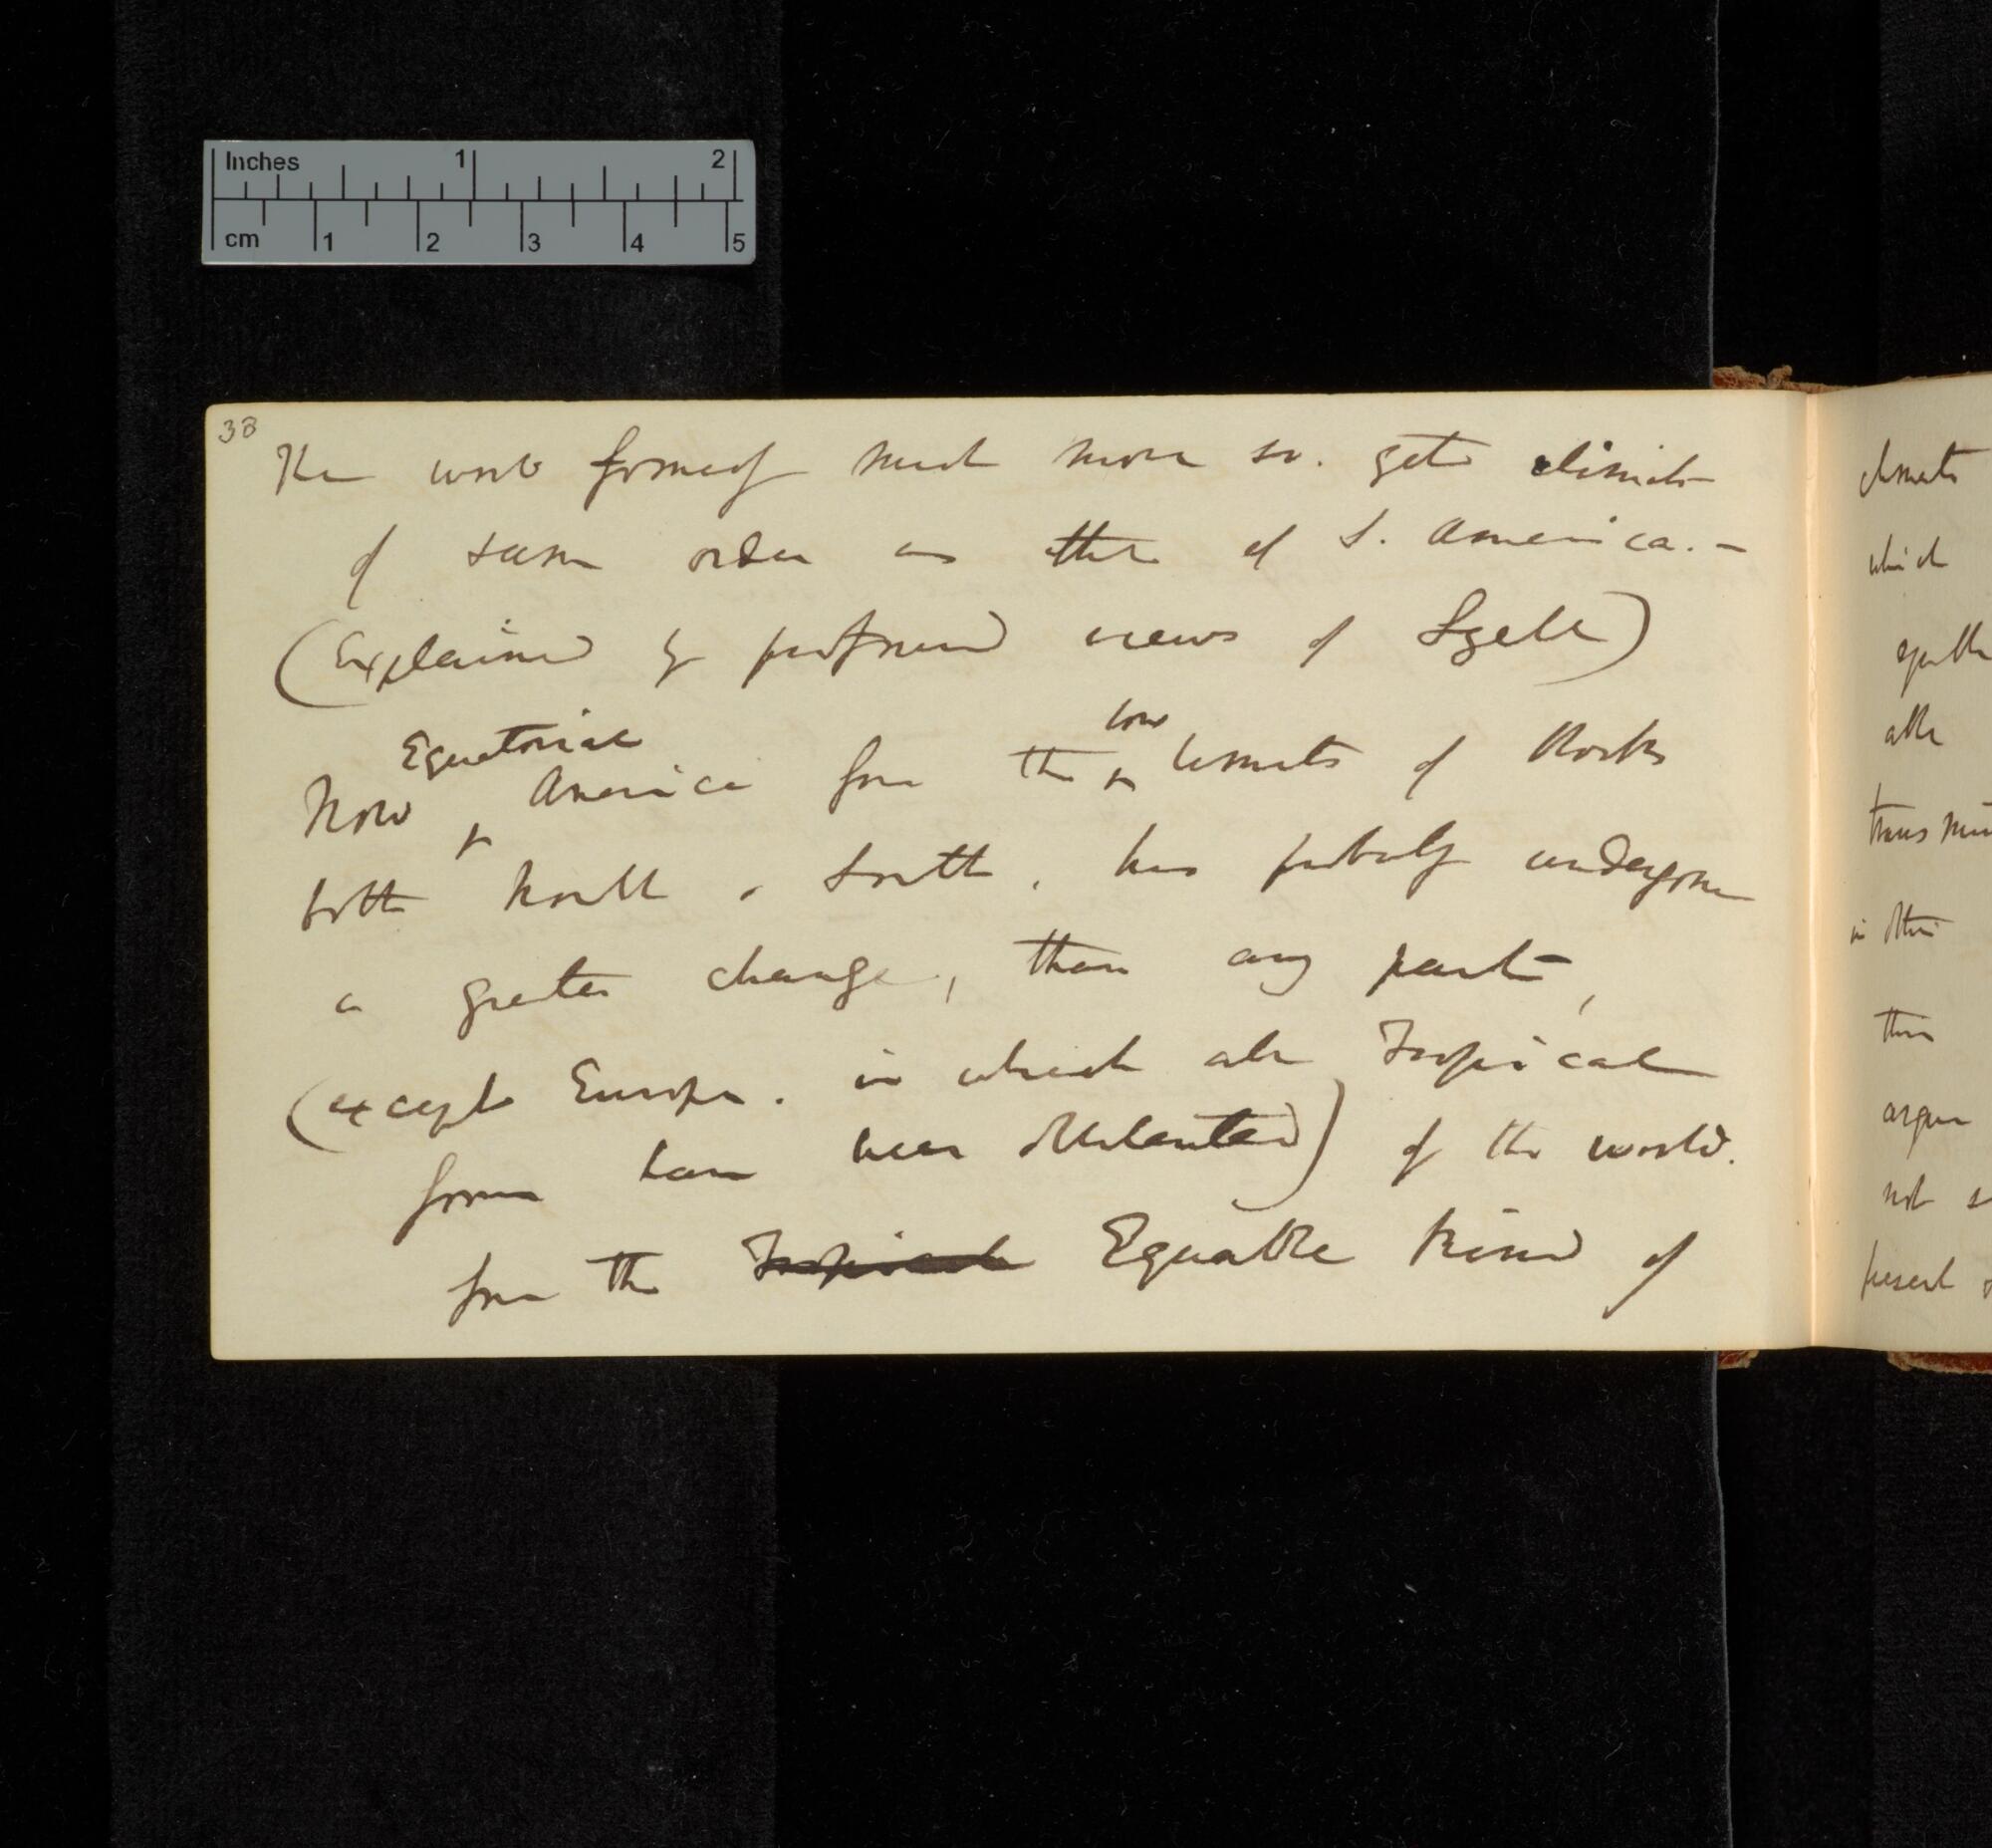 Inches 1 2
cm 1 2 3 4 5
38
The world formerly much more so. yet climate
of same order as that of S. America. -
(Explained by profound views of Lyell)
Equatorial low
Now America from the limits of Blocks
both North & South, has probably undergone
a greater change, than any part,
(except Europe. in which all Tropical
forms have been obliterated) of the world.
from the Tropical Equable kind of
climate
which
in other
not
present